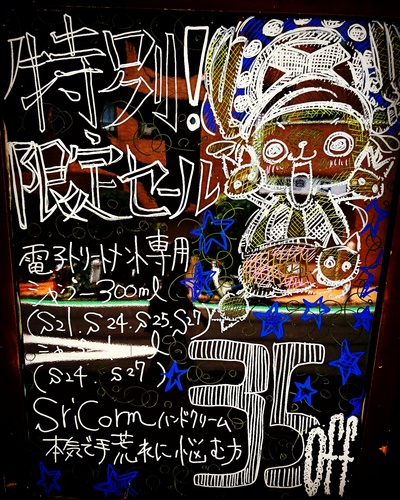 特別!
限定セール
電子トリートメント専用
シャンプー 300ml
(S21. S24. S25. S27)
(S24. S27)
SriCorm ハンドクリーム
本気で手荒れに悩む方
35
OFF